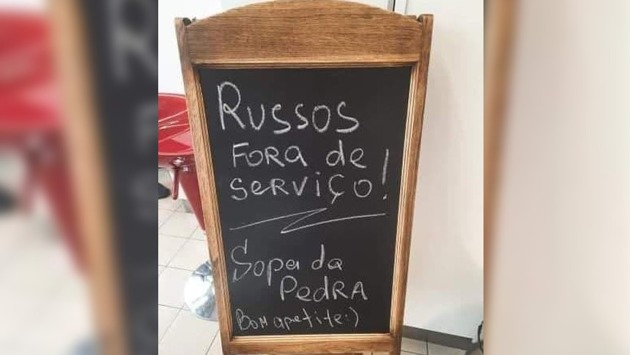 RUSSOS
FORA de
SERVIÇO!
Sopa da
PEDRA
Bom apetite:)